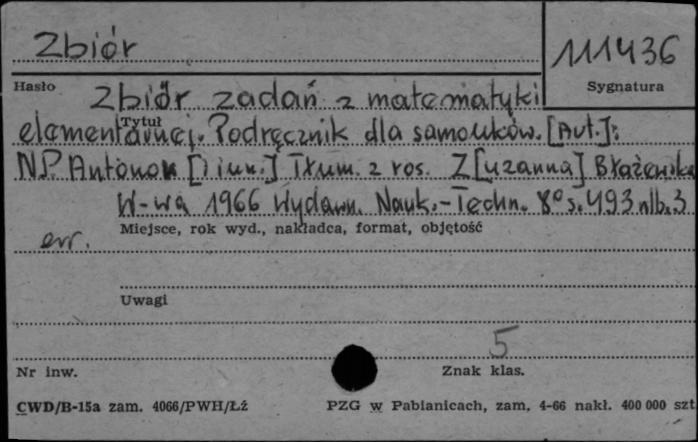 Zbiór
111436
Hasło
Sygnatura
Zbiór zadań z matematyki
Tytuł
elementarnej. Podręcznik dla samouków. [Aut.]:
N.P. Antonow [i inn.] Tłum. z ros. Z[uzanna] Błażewska
W-wa 1966 Wydawn. Nauk.-Techn. 8° s. 493 nlb. 3.
Miejsce, rok wyd., nakładca, format, objętość
err.
Uwagi
5
Nr inw.
Znak klas.
CWD/B-15a zam. 4066/PWH/Łź
PZG w Pabianicach, zam, 4-66 nakł. 400 000 szt